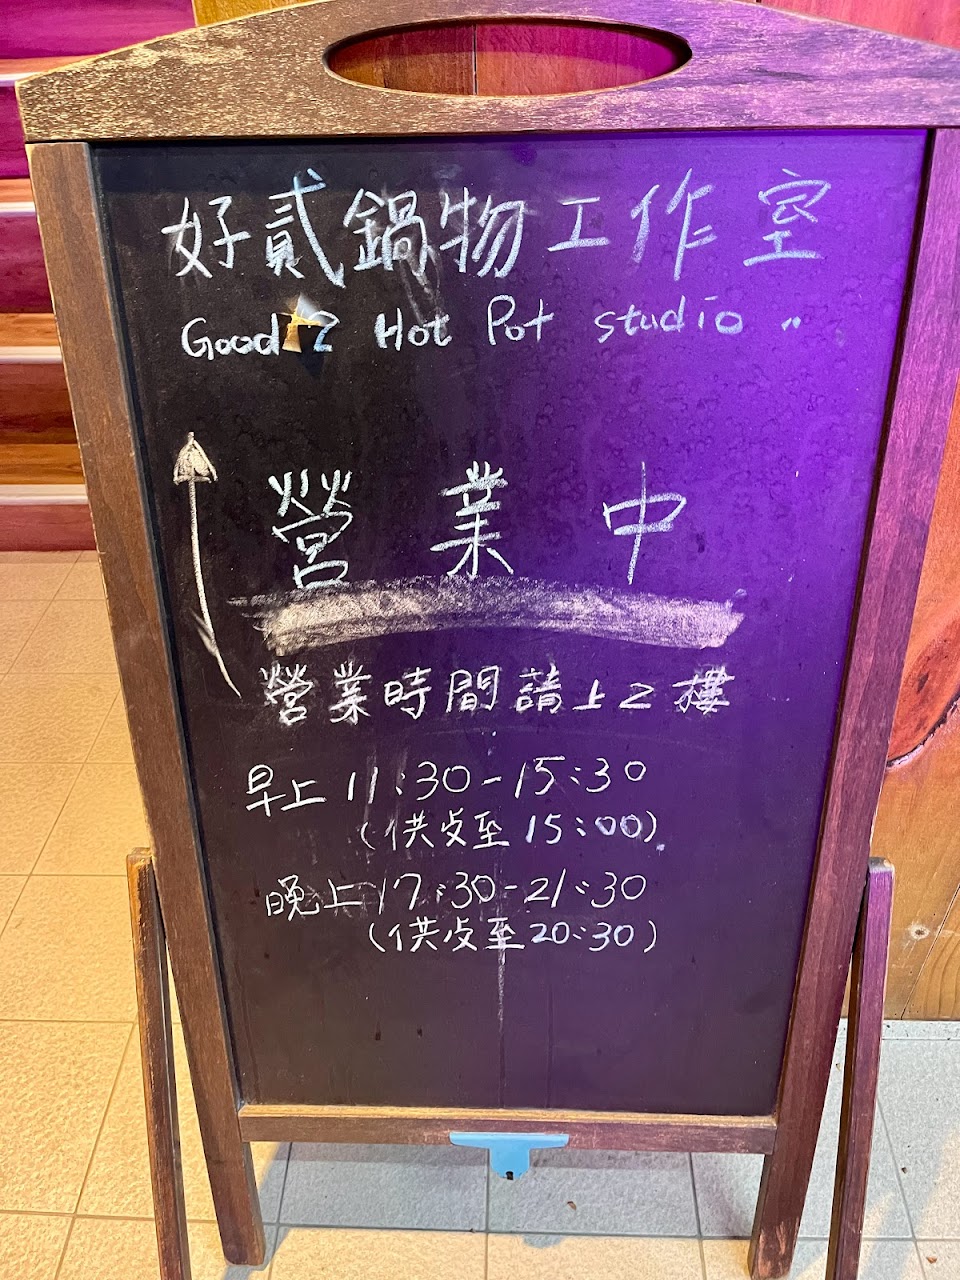 好貳鍋物工作室
Good 2 Hot Pot studio
營業中
營業時間請上2樓
早上 11:30-15:30
(供桌至 15:00)
晚上 17:30-21:30
(供桌至 20:30)